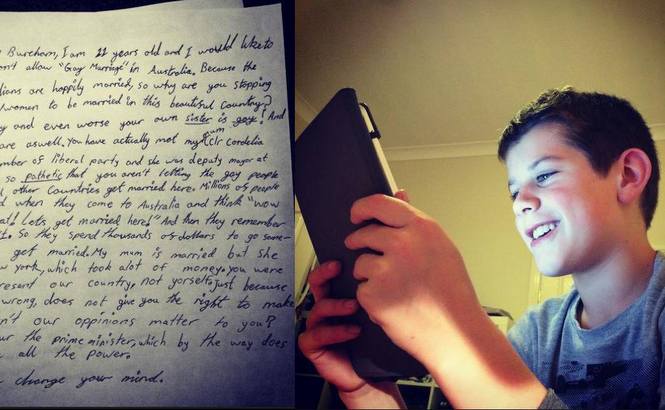 Burcham, I am 11 years old and I would like to
n't allow "Gay Marriage" in Australia. Because the
lions are happily married, so why are you stopping
women to be married in this beautiful country?
y and even worse your own sister is gay! And
are aswell. You have actually met my mum (clr Cordelia
mber of liberal party and she was deputy mayor at
so pathetic that you aren't letting the gay people
other Countries get married here. Millions of people
d when they come to Australia and think "wow
at! Lets get married here!" And then they remember
t. So they spend thousands of dollars to go some-
get married. My mum is married but she
w york, which took alot of money. you were
resent our country, not yorself. just because
wrong, does not give you the right to make
n't our oppinions matter to you?
ur the prime minister, which by the way does
all the power.
change your mind.